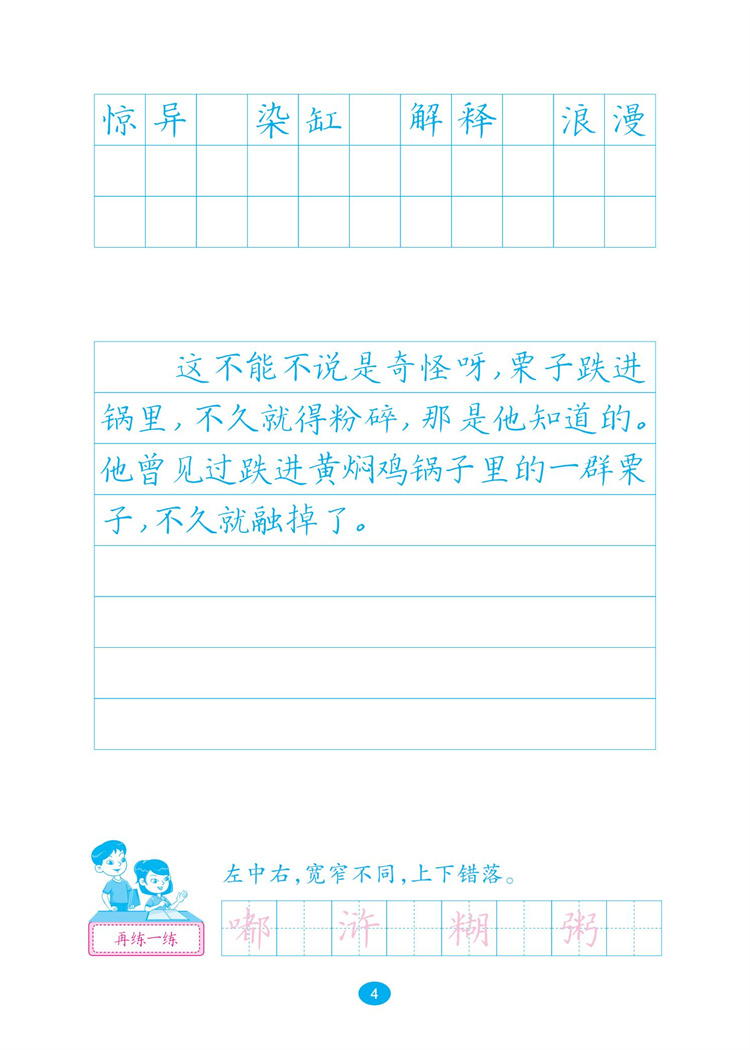 惊异 染缸 解释 浪漫
这不能不说是奇怪呀，栗子跌进
锅里，不久就得粉碎，那是他知道的。
他曾见过跌进黄焖鸡锅子里的一群栗
子，不久就融掉了。
左中右，宽窄不同，上下错落。
嘟 浒 糊 粥
再练一练
4